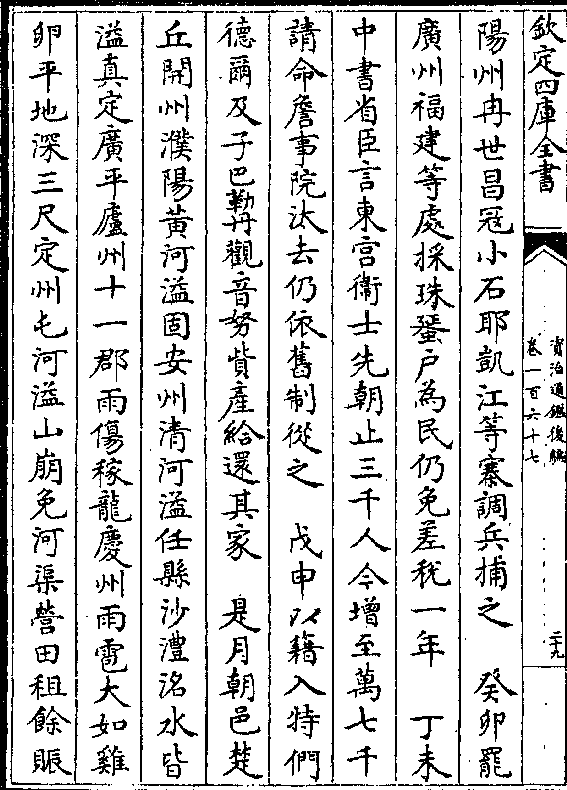 欽定四庫全書
資治通鑑後編
卷一百六十七
二十九
陽州冉世昌冦小石耶凱江等寨調兵捕之　癸卯罷
廣州福建等處採珠蜑户為民仍免差稅一年　丁未
中書省臣言東宫衞士先朝止三千人今增至萬七千
請命詹事院汰去仍依舊制從之　戊申以籍入特們
德爾及子巴勒丹觀音努貲產給還其家　是月朝邑楚
丘開州濮陽黄河溢固安州清河溢任縣沙澧洺水皆
溢真定廣平廬州十一郡雨傷稼龍慶州雨雹大如雞
卵平地深三尺定州屯河溢山崩免河渠營田租餘賑